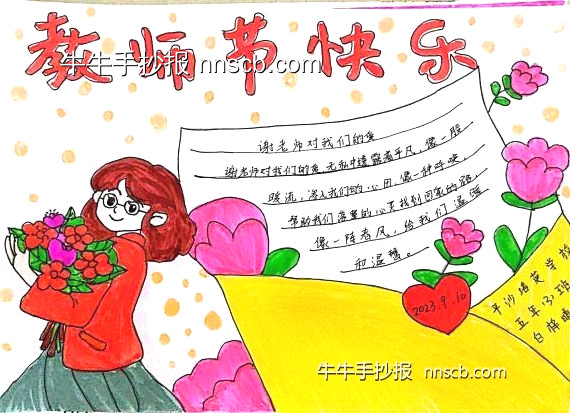 教师节快乐
牛牛手抄报 nnscb.com
谢老师对我们的爱
谢老师对我们的爱,无私中透露着平凡,像一股
暖流,渗入我们的心田,像一种呼唤,
帮助我们落寞的心灵找到回家的路,
像一阵春风,给我们温暖
和温馨。
2023.9.10
平沙培英学校
五年(3)班
白梓晴
牛牛手抄报 nnscb.com